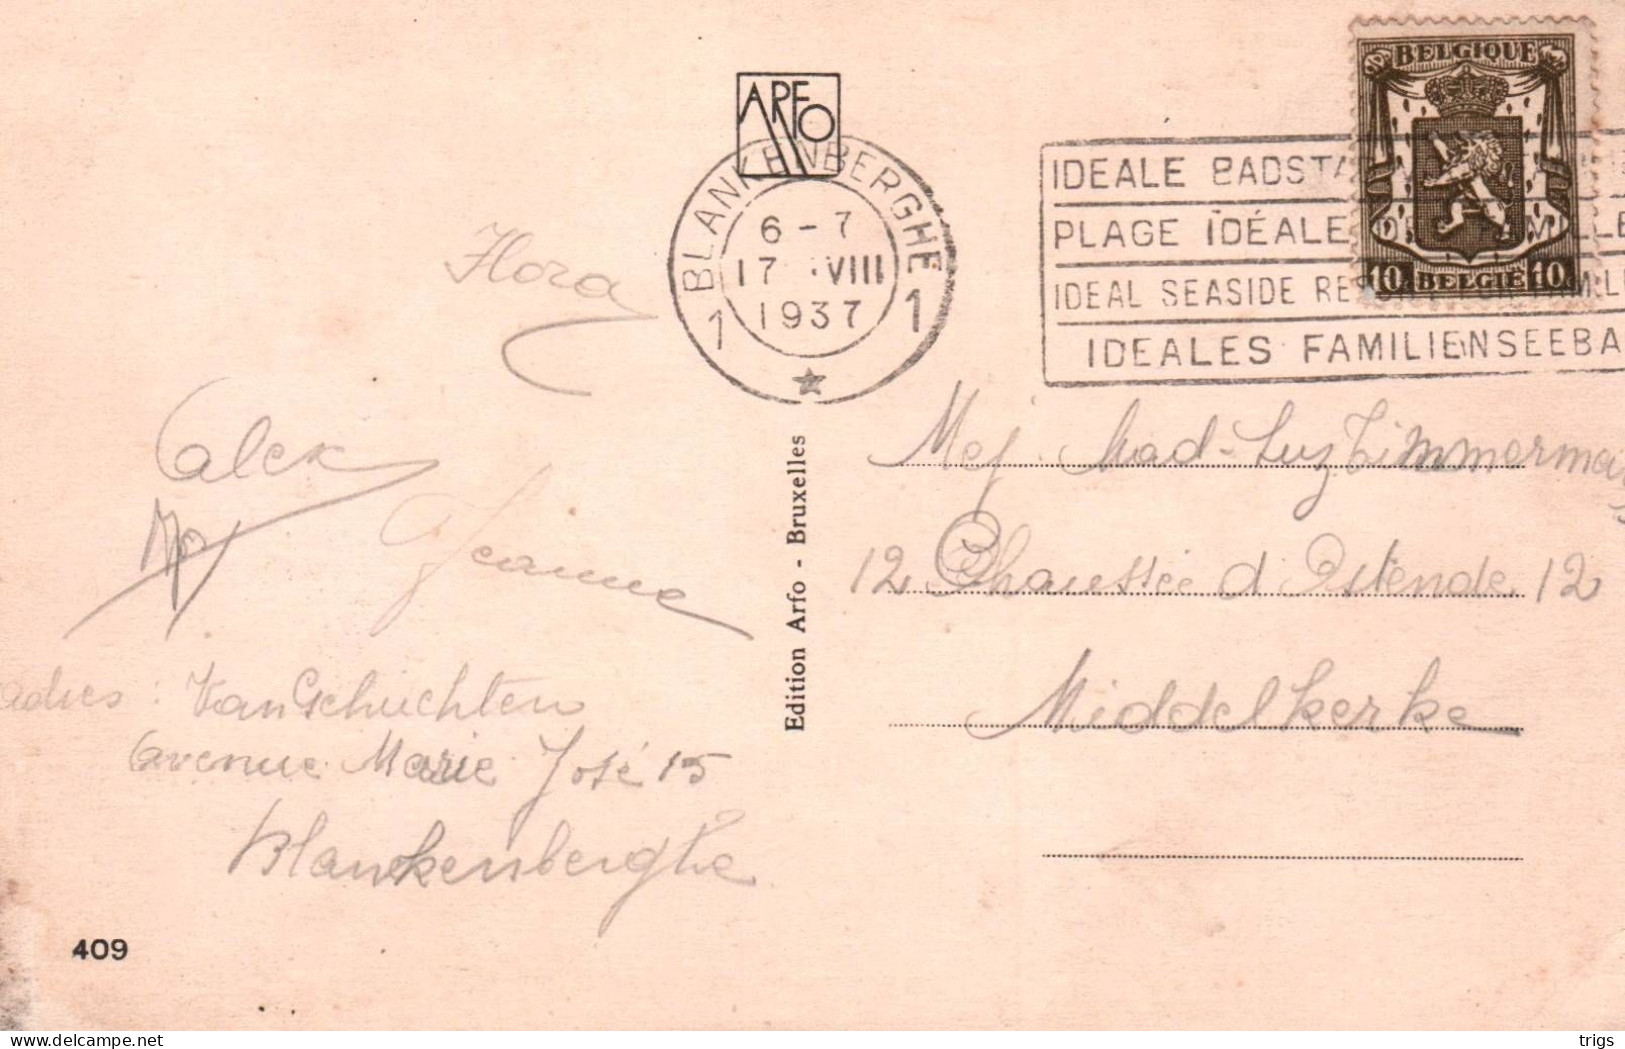 ARFO
BLANKENBERGHE
6 - 7
17 VIII
1937
1 1
BELGIQUE
10 BELGIE 10
IDEALE BADSTA
PLAGE IDÉALE
IDEAL SEASIDE RE
IDEALES FAMILIENSEEBA
Flora
Alex
Jeanne
adres : Van Gchuchten
avenue Marie José 15
Blankenberghe
409
Edition Arfo - Bruxelles
Mej. Mad-Luz Zimmerman
12 Chaussée d'Ostende 12
Middelkerke
delcampe.net
trigs